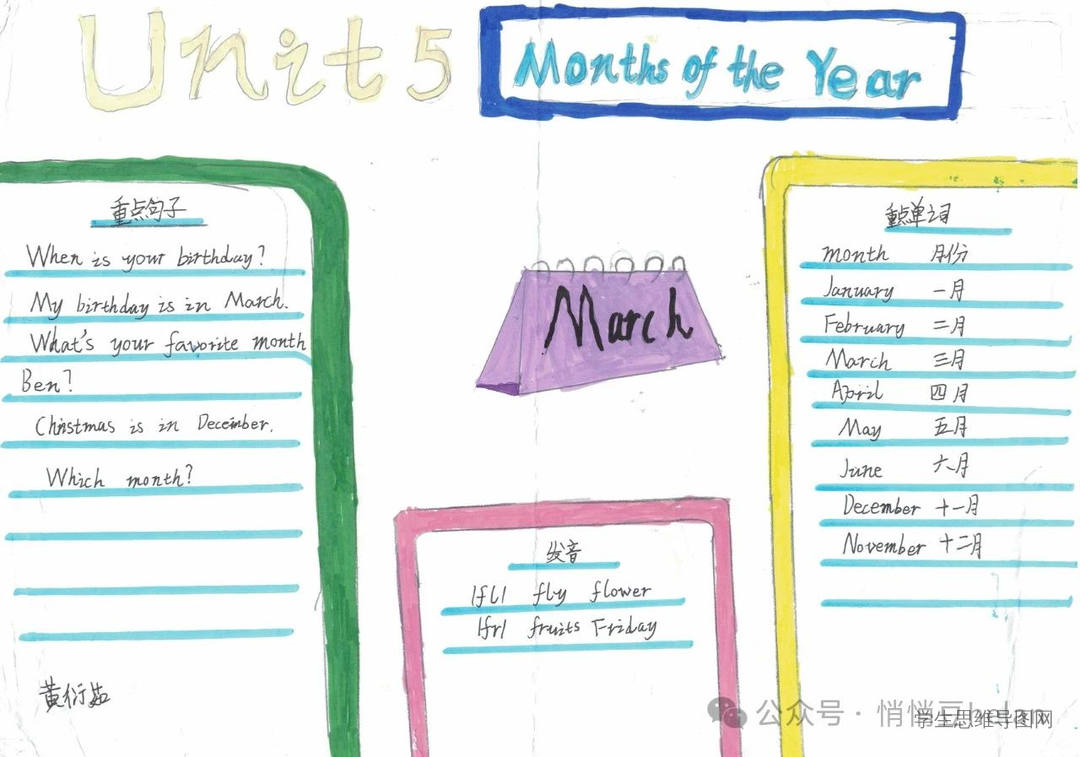 Unit 5
Months of the Year
重点句子
When is your birthday?
My birthday is in March.
What's your favorite month
Ben?
Christmas is in December.
Which month?
March
发音
|fl| fly flower
|fr| fruits Friday
重点单词
month 月份
January 一月
February 二月
March 三月
April 四月
May 五月
June 六月
December 十一月
November 十二月
公众号 · 悄悄
学生思维导图网